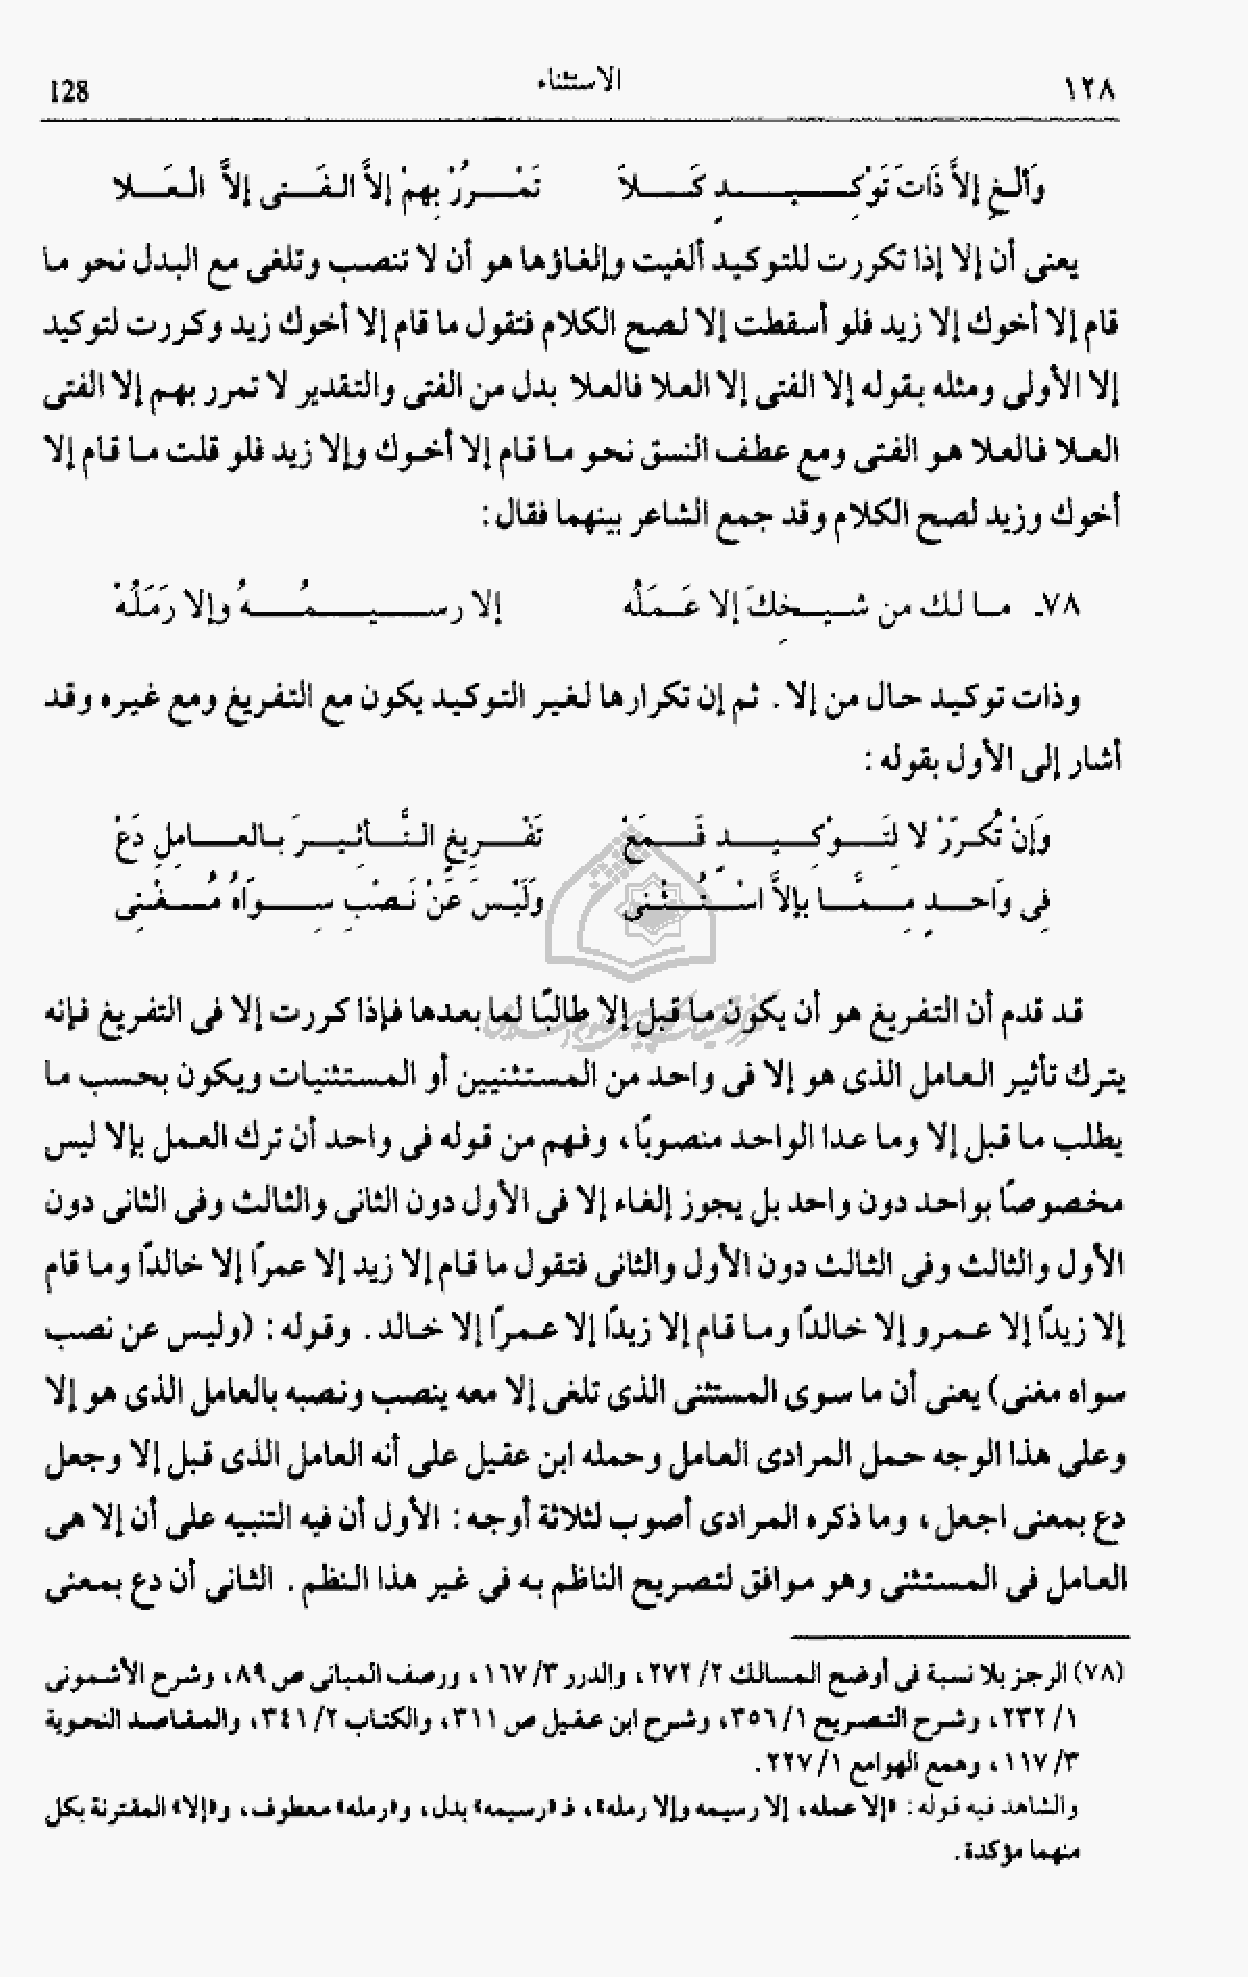 ١٢٨ الاستثناء 128
وَأَلْغِ إِلاَّ ذَاتَ تَوْكِيدٍ كَلاَ تَمْرُرْ بِهِمْ إِلاَّ الفَتَى إِلاَّ العَلا
يعنى أن إلا إذا تكررت للتوكيد ألغيت وإلغاؤها هو أن لا تنصب وتلغى مع البدل نحو ما
قام إلا أخوك إلا زيد فلو أسقطت إلا لصح الكلام فتقول ما قام إلا أخوك زيد وكررت لتوكيد
إلا الأولى ومثله بقوله إلا الفتى إلا العلا فالعلا بدل من الفتى والتقدير لا تمرر بهم إلا الفتى
العلا فالعلا هو الفتى ومع عطف النسق نحو ما قام إلا أخوك وإلا زيد فلو قلت ما قام إلا
أخوك وزيد لصح الكلام وقد جمع الشاعر بينهما فقال :
٧٨ـ ما لك من شيخِكَ إلا عَمَلُه إلا رسيمُهُ وإلا رَمَلُهْ
وذات توكيد حال من إلا . ثم إن تكرارها لغير التوكيد يكون مع التفريغ ومع غيره وقد
أشار إلى الأول بقوله :
وَإِنْ تُكَرَّرْ لا لِتَوْكِيدٍ فَمَعْ تَفْرِيغٍ التَّأثِيرَ بالعامِلِ دَعْ
فِى وَاحدٍ مِمَّا بإلاَّ اسْتُثْنِى وَلَيْسَ عَنْ نَصْبِ سِوَاهُ مُغْنِى
قد قدم أن التفريغ هو أن يكون ما قبل إلا طالبًا لما بعدها فإذا كررت إلا فى التفريغ فإنه
يترك تأثير العامل الذى هو إلا فى واحد من المستثنيين أو المستثنيات ويكون بحسب ما
يطلب ما قبل إلا وما عدا الواحد منصوبًا ، وفهم من قوله فى واحد أن ترك العمل بإلا ليس
مخصوصًا بواحد دون واحد بل يجوز إلغاء إلا فى الأول دون الثانى والثالث وفى الثانى دون
الأول والثالث وفى الثالث دون الأول والثانى فتقول ما قام إلا زيد إلا عمرًا إلا خالدًا وما قام
إلا زيدًا إلا عمرو إلا خالدًا وما قام إلا زيدًا إلا عمرًا إلا خالد . وقوله : (وليس عن نصب
سواه مغنى) يعنى أن ما سوى المستثنى الذى تلغى إلا معه ينصب ونصبه بالعامل الذى هو إلا
وعلى هذا الوجه حمل المرادى العامل وحمله ابن عقيل على أنه العامل الذى قبل إلا وجعل
دع بمعنى اجعل ، وما ذكره المرادى أصوب لثلاثة أوجه : الأول أن فيه التنبيه على أن إلا هى
العامل فى المستثنى وهو موافق لتصريح الناظم به فى غير هذا النظم . الثانى أن دع بمعنى
(٧٨) الرجز بلا نسبة فى أوضح المسالك ٢/ ٢٧٢، والدرر ٣/ ١٦٧، ورصف المبانى ص ٨٩، وشرح الأشمونى
١/ ٢٣٢، وشرح التصريح ١/ ٣٥٦، وشرح ابن عقيل ص ٣١١، والكتاب ٢/ ٣٤١، والمقاصد النحوية
٣/ ١١٧، وهمع الهوامع ١/ ٢٢٧.
والشاهد فيه قوله : «إلا عمله، إلا رسيمه وإلا رمله»، فـ «رسيمه» بدل، و«رمله» معطوف، و«إلا» المقترنة بكل
منهما مؤكدة.